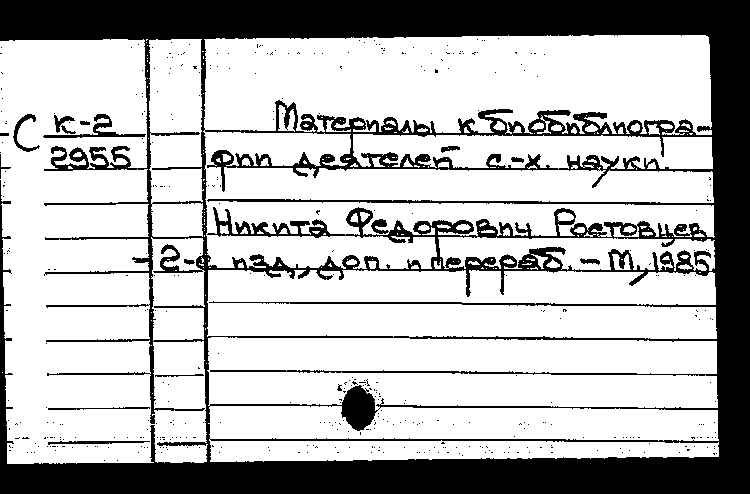 С к-2
2955
Материалы к биобиблиогра-
фии деятелей с.-х. науки.
Никита Федорович Ростовцев
- 2-е изд., доп. и перераб. – М., 1985.